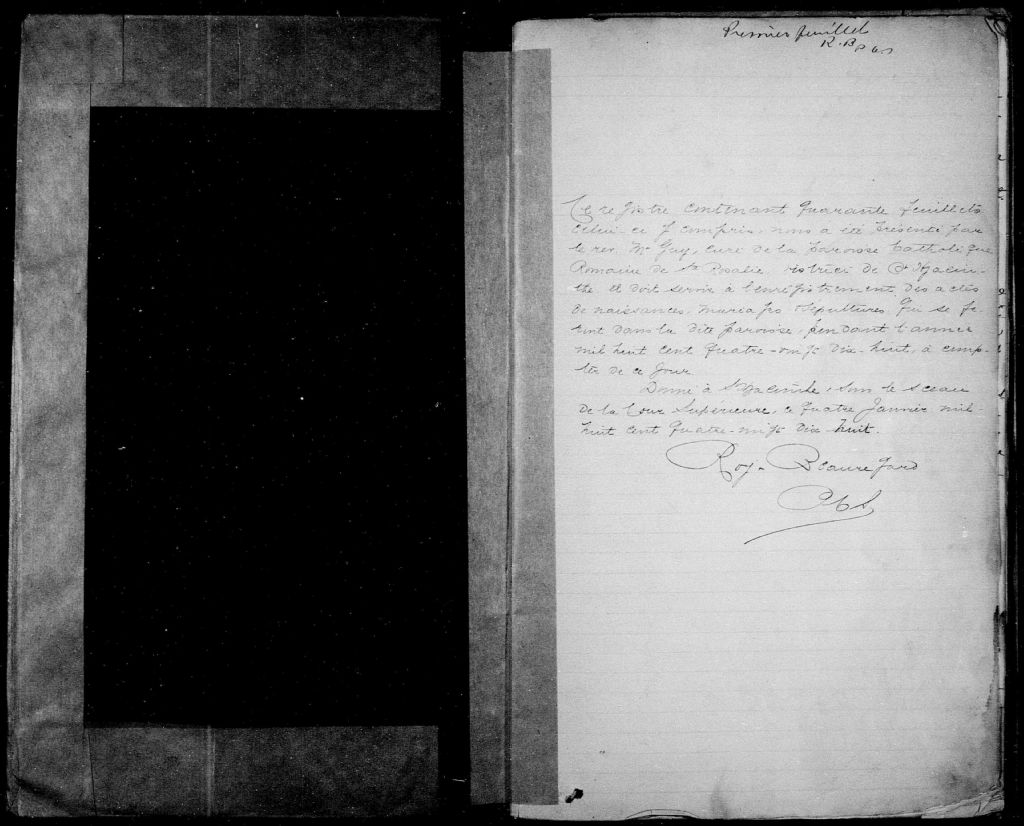 Premier feuillet
R. B p c s
Ce registre contenant quarante feuillets
celui-ci y compris, nous a été présenté par
le rev. Mr Guy, curé de la paroisse Catholique
Romaine de Ste Rosalie, district de St Hyacin-
the et doit servir à l'enregistrement des actes
de naissances, mariages & sépultures, qui se fe-
ront dans la dite paroisse, pendant l'année
mil huit cent quatre-vingt dix-huit, à comp-
ter de ce jour
Donné à St Hyacinthe, sous le sceau
de la Cour Supérieure, ce quatre Janvier mil-
huit cent quatre-vingt dix-huit.
Roy-Beauregard
P C S